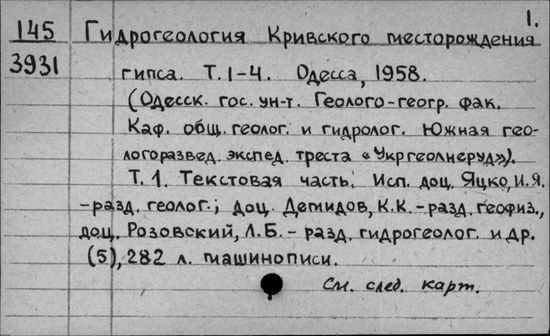 1.
145 Гидрогеология Кривского месторождения
3931 гипса. Т. 1-4. Одесса, 1958.
(Одесск. гос. ун-т. Геолого-геогр. фак.
Каф. общ. геолог. и гидролог. Южная гео-
логоразвед. экспед. треста «Укргеолнеруд»).
Т. 1. Текстовая часть. Исп. доц. Яцко, И.Я.
-разд. геолог.; доц. Демидов, К.К. - разд. геофиз.,
доц. Розовский, Л.Б. - разд. гидрогеолог. и др.
(5), 282 л. машинописи.
См. след. карт.